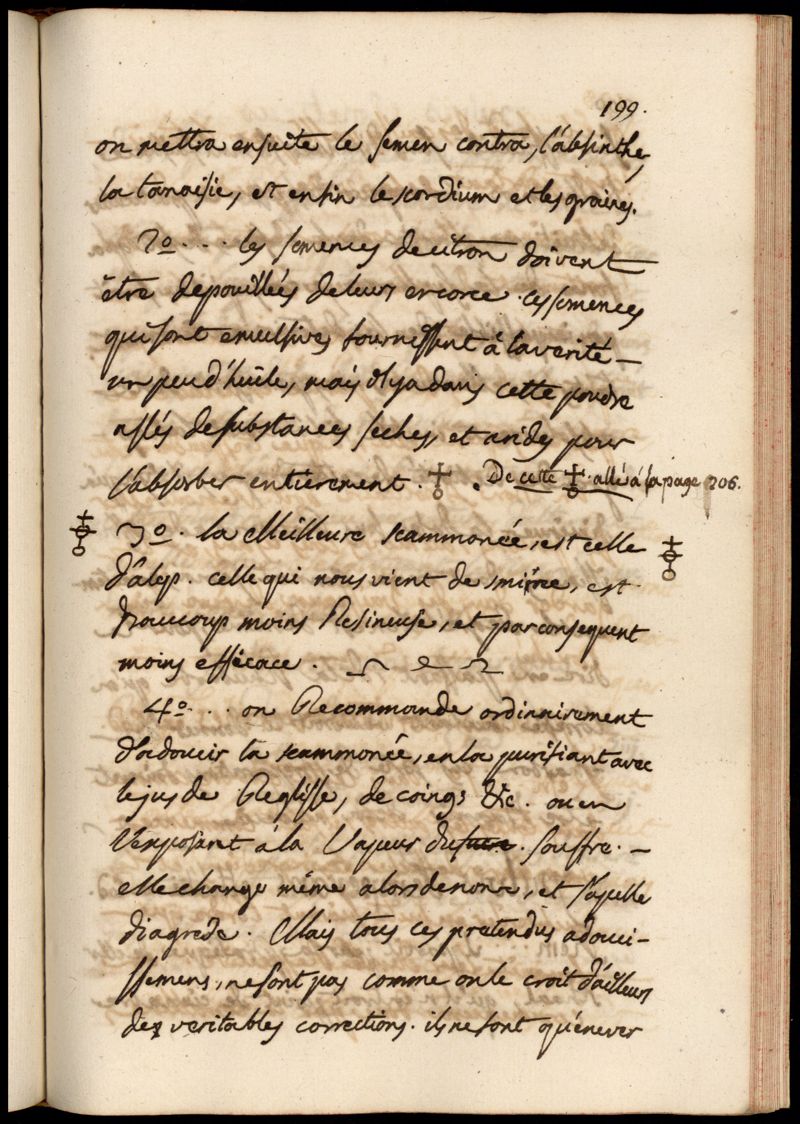 199.
on mettra ensuite le semen contra, l'absinthe,
la tanaisie, et enfin le scordium et les graines.
2º... les semences de citron doivent
être depouillées de leur ecorce. ces semences
qui sont emulsives fournissent á la verité —
un peu d'huile, mais il y a dans cette poudre
assés de substances seches, et arides pour
l'absorber entièrement. De cette allé á la page 206.
3º. la Meilleure scammonée, est celle
d'alep. celle qui nous vient de smirne, est
beaucoup moins Resineuse, et par consequent
moins efficace.
4º... on Recommande ordinairement
d'adoucir la scammonée, en la purifiant avec
le jus de Reglisse, de coings &c. ou en
l'exposant á la Vapeur du souffre. —
elle change même alors de nom, et s'apelle
diagrede. Mais tous ces pretendus adouci-
ssemens, ne sont pas comme on le croit d'ailleurs
des veritables corrections. ils ne font qu'énerver